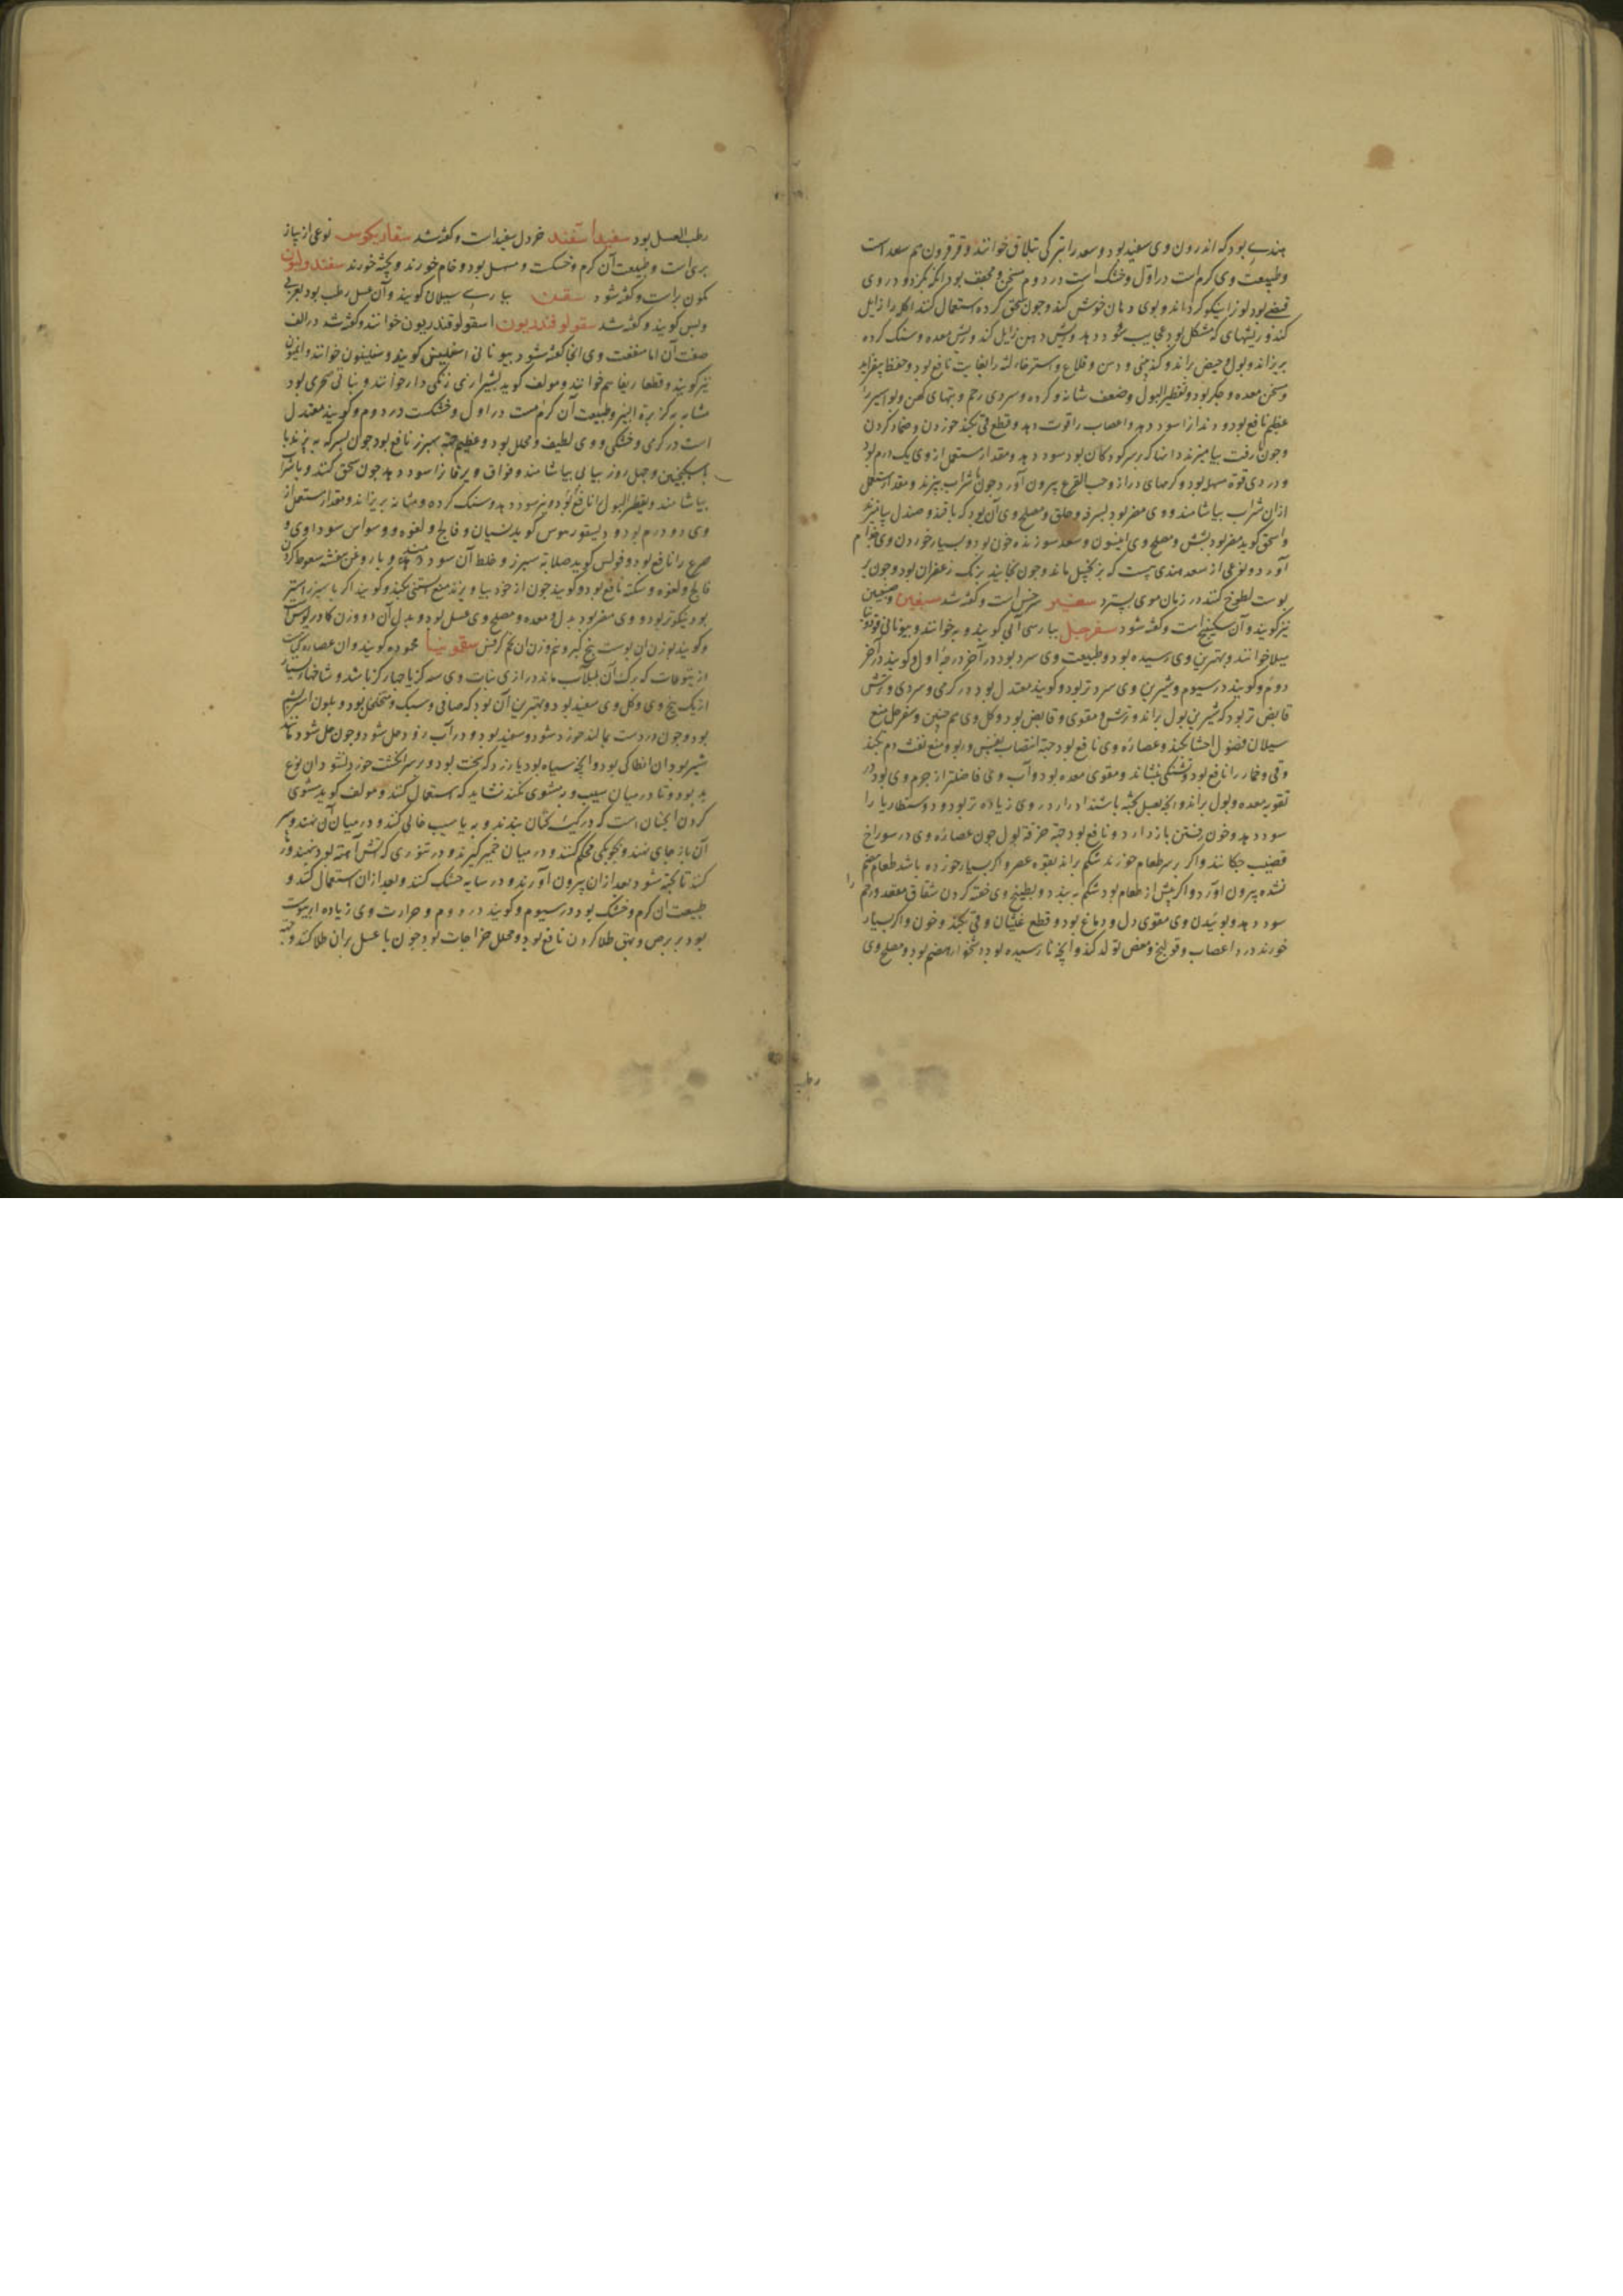 هندی بود که اندرون وی سفید بود و سعد را بترکی تبلاق خوانند و قرقرون هم سعد است
و طبیعت وی کرم است در اول و خشک است در دوم مسخن و مجفف بود و در وی
قبضی بود لون را نیکو کرداند و بوی دهان خوش کند و چون سحق کرده استعمال کنند اکله را زایل
کند و ریشهای که مشکل بود عجایب سود دهد و ریش دهن زایل کند و ریش معده و سنک کرده
بریزاند و بول و حیض براند و کند بینی و دهن و قلاع و استرخاء لثه را بغایت نافع بود و حفظ بیفزاید
و مسخن معده و جکر بود و تقطیر البول و ضعف مثانه و کرده و سردی رحم و تبهای کهن و بواسیر را
عظیم نافع بود و دندانرا سود دهد و اعصاب را قوت دهد و قطع قی بکند خوردن و ضماد کردن
و چون با زفت بیامیزند سر کودکان بود سود دهد و مقدار مستعمل از وی یک درم بود
و در وی قوة مسهل بود و کرمهای دراز و حب القرع بیرون آورد چون با شراب بپزند و مقدار مستعمل
ازان شراب بیاشامند و وی مضر بود بسرفه و حلق و مصلح وی آن بود که با قند و صندل بیامیزند
و اسحق کوید مضر بود بشش و مصلح وی انیسون و سعد سوزنده خون بود و بسیار خوردن وی جذام
آورد و نوعی از سعد هندی هست که بزنجبیل ماند و چون بخایند برنک زعفران بود و چون بر
پوست لطوخ کنند در زمان موی بسترد سفیر سرخس است و کفته شد سفیین و صفیین
نیز کویند و آن سکبینج است و کفته شود سفرجل بپارسی آبی کویند و به خوانند و بیونانی
میلا خوانند و بهترین وی رسیده بود و طبیعت وی سرد بود در آخر درجه اول و کویند در آخر
دوم و کویند در سیوم و شیرین وی سرد تر بود و کویند معتدل بود در کرمی و سردی و ترش
قابض تر بود که شیرین بول براند و ترش مقوی و قابض بود و کل وی هم چنین و سفرجل منع
سیلان فضول احشا بکند و عصاره وی نافع بود جهة انتصاب نفس و ربو و منع نفث دم بکند
و قی و خمار را نافع بود و تشنکی بنشاند و مقوی معده بود و آب وی فاضلتر از جرم وی بود در
تقویه معده و بول براند و انچه بعسل پخته باشند ادرار در وی زیاده تر بود و دوسنطاریا را
سود دهد و خون رفتن باز دارد و نافع بود جهة حرقة بول چون عصاره وی در سوراخ
قضیب چکانند و اکر بر سر طعام خورند شکم براند بقوه عصر و اکر بسیار خورده باشد طعام هضم
نشده بیرون آورد و اکر پیش از طعام بود شکم به بندد و بطبیخ وی حقنه کردن شقاق مقعد و رحم را
سود دهد و بوئیدن وی مقوی دل و دماغ بود و قطع غثیان و قی بکند و خون و اکر بسیار
خورند درد اعصاب و قولنج و مغص تولد کند و انچه نارسیده بود دشخوار هضم بود و مصلح وی
رطب
رطب العسل بود سفید اسفند خردل سفید است و کفته شد سقاریکوس نوعی از پیاز
بری است و طبیعت آن کرم و خشکست و مسهل بود و خام خورند و پخته خورند سفندولیون
کمون بریست و کفته شود سقن بپارسی سیلان کویند و آن عسل رطب بود بعربی
دبس کویند و کفته شد سقولوقندریون اسقولوقندریون خوانند و کفته شد در الف
صفت آن اما منفعت وی انجا کفته شود بیونانی اسقلینس کویند و سفلینون خوانند
نیز کویند و قطعا ریغا هم خوانند و مولف کوید بشیرازی زنکی دارو خوانند و نباتی صحری بود
مشابه بکزبرة البیر و طبیعت آن کرمست در اول و خشکست در دوم و کویند معتدل
است در کرمی و خشکی و وی لطیف و محلل بود و عظیم جهة سپرز نافع بود چون بسرکه به پزند یا
باسکنجبین و چهل روز پیاپی بیاشامند و فواق و یرقانرا سود دهد چون سحق کنند و با شراب
بیاشامند و تقطیر البول را نافع بود و نیز سود دهد و سنک کرده و مثانه بریزاند و مقدار مستعمل از
وی دو درم بود و دیسقوریدوس کوید نسیان و فالج و لقوه و وسواس سوداوی و
صرع را نافع بود و فولس کوید صلابة سپرز و غلظ آن سود دهد و با روغن بنفشه سعوط کردن
فالج و لقوه و سکته نافع بود و کویند چون از خود بیاویزند منع آبستنی بکند و کویند اکر با سپرز استر
بود نیکوتر بود و وی مضر بود بدل و معده و مصلح وی عسل بود و بدل آن دو وزن کادریوس است
و کویند بوزن آن پوست بیخ کبر و نیم وزن آن تخم کرفس سقمونیا محموده کویند و آن عصاره ایست
از یتوعات که برک آن بلبلاب ماند درازی نبات وی سه کز یا چهار کز باشد و شاخها بسیار
از یک بیخ وی و کل وی سفید بود و بهترین آن بود که صافی و سبک و متخلخل بود و بلون سریشم
بود و چون در دست بمالند خورد شود و سفید بود و در آب زود حل شود و چون حل شود مانند
شیر بود آن انطاکی بود و انچه سیاه بود یا زرد که سخت بود و بر سر انکشت خورد نشود آن نوع
بد بود و تا در میان سیب و به مشوی نکنند نشاید که استعمال کنند و مولف کوید مشوی
کردن انچنان است که در کیسه کتان بندند و به یا سیب خالی کنند و در میان آن نهند و سر
آن باز جای نهند و بچوبکی محکم کنند و در میان خمیر کیرند و در تنوری که آتش آهسته بود نهند و
کنند تا پخته شود بعد ازان بیرون آورند و در سایه خشک کنند و بعد ازان استعمال کنند و
طبیعت آن کرم و خشک بود در سیوم و کویند در دوم و حرارت وی زیاده از یبوست
بود بر برص و بهق طلا کردن نافع بود و محلل جراحات بود چون با عسل بران طلا کنند و جهة